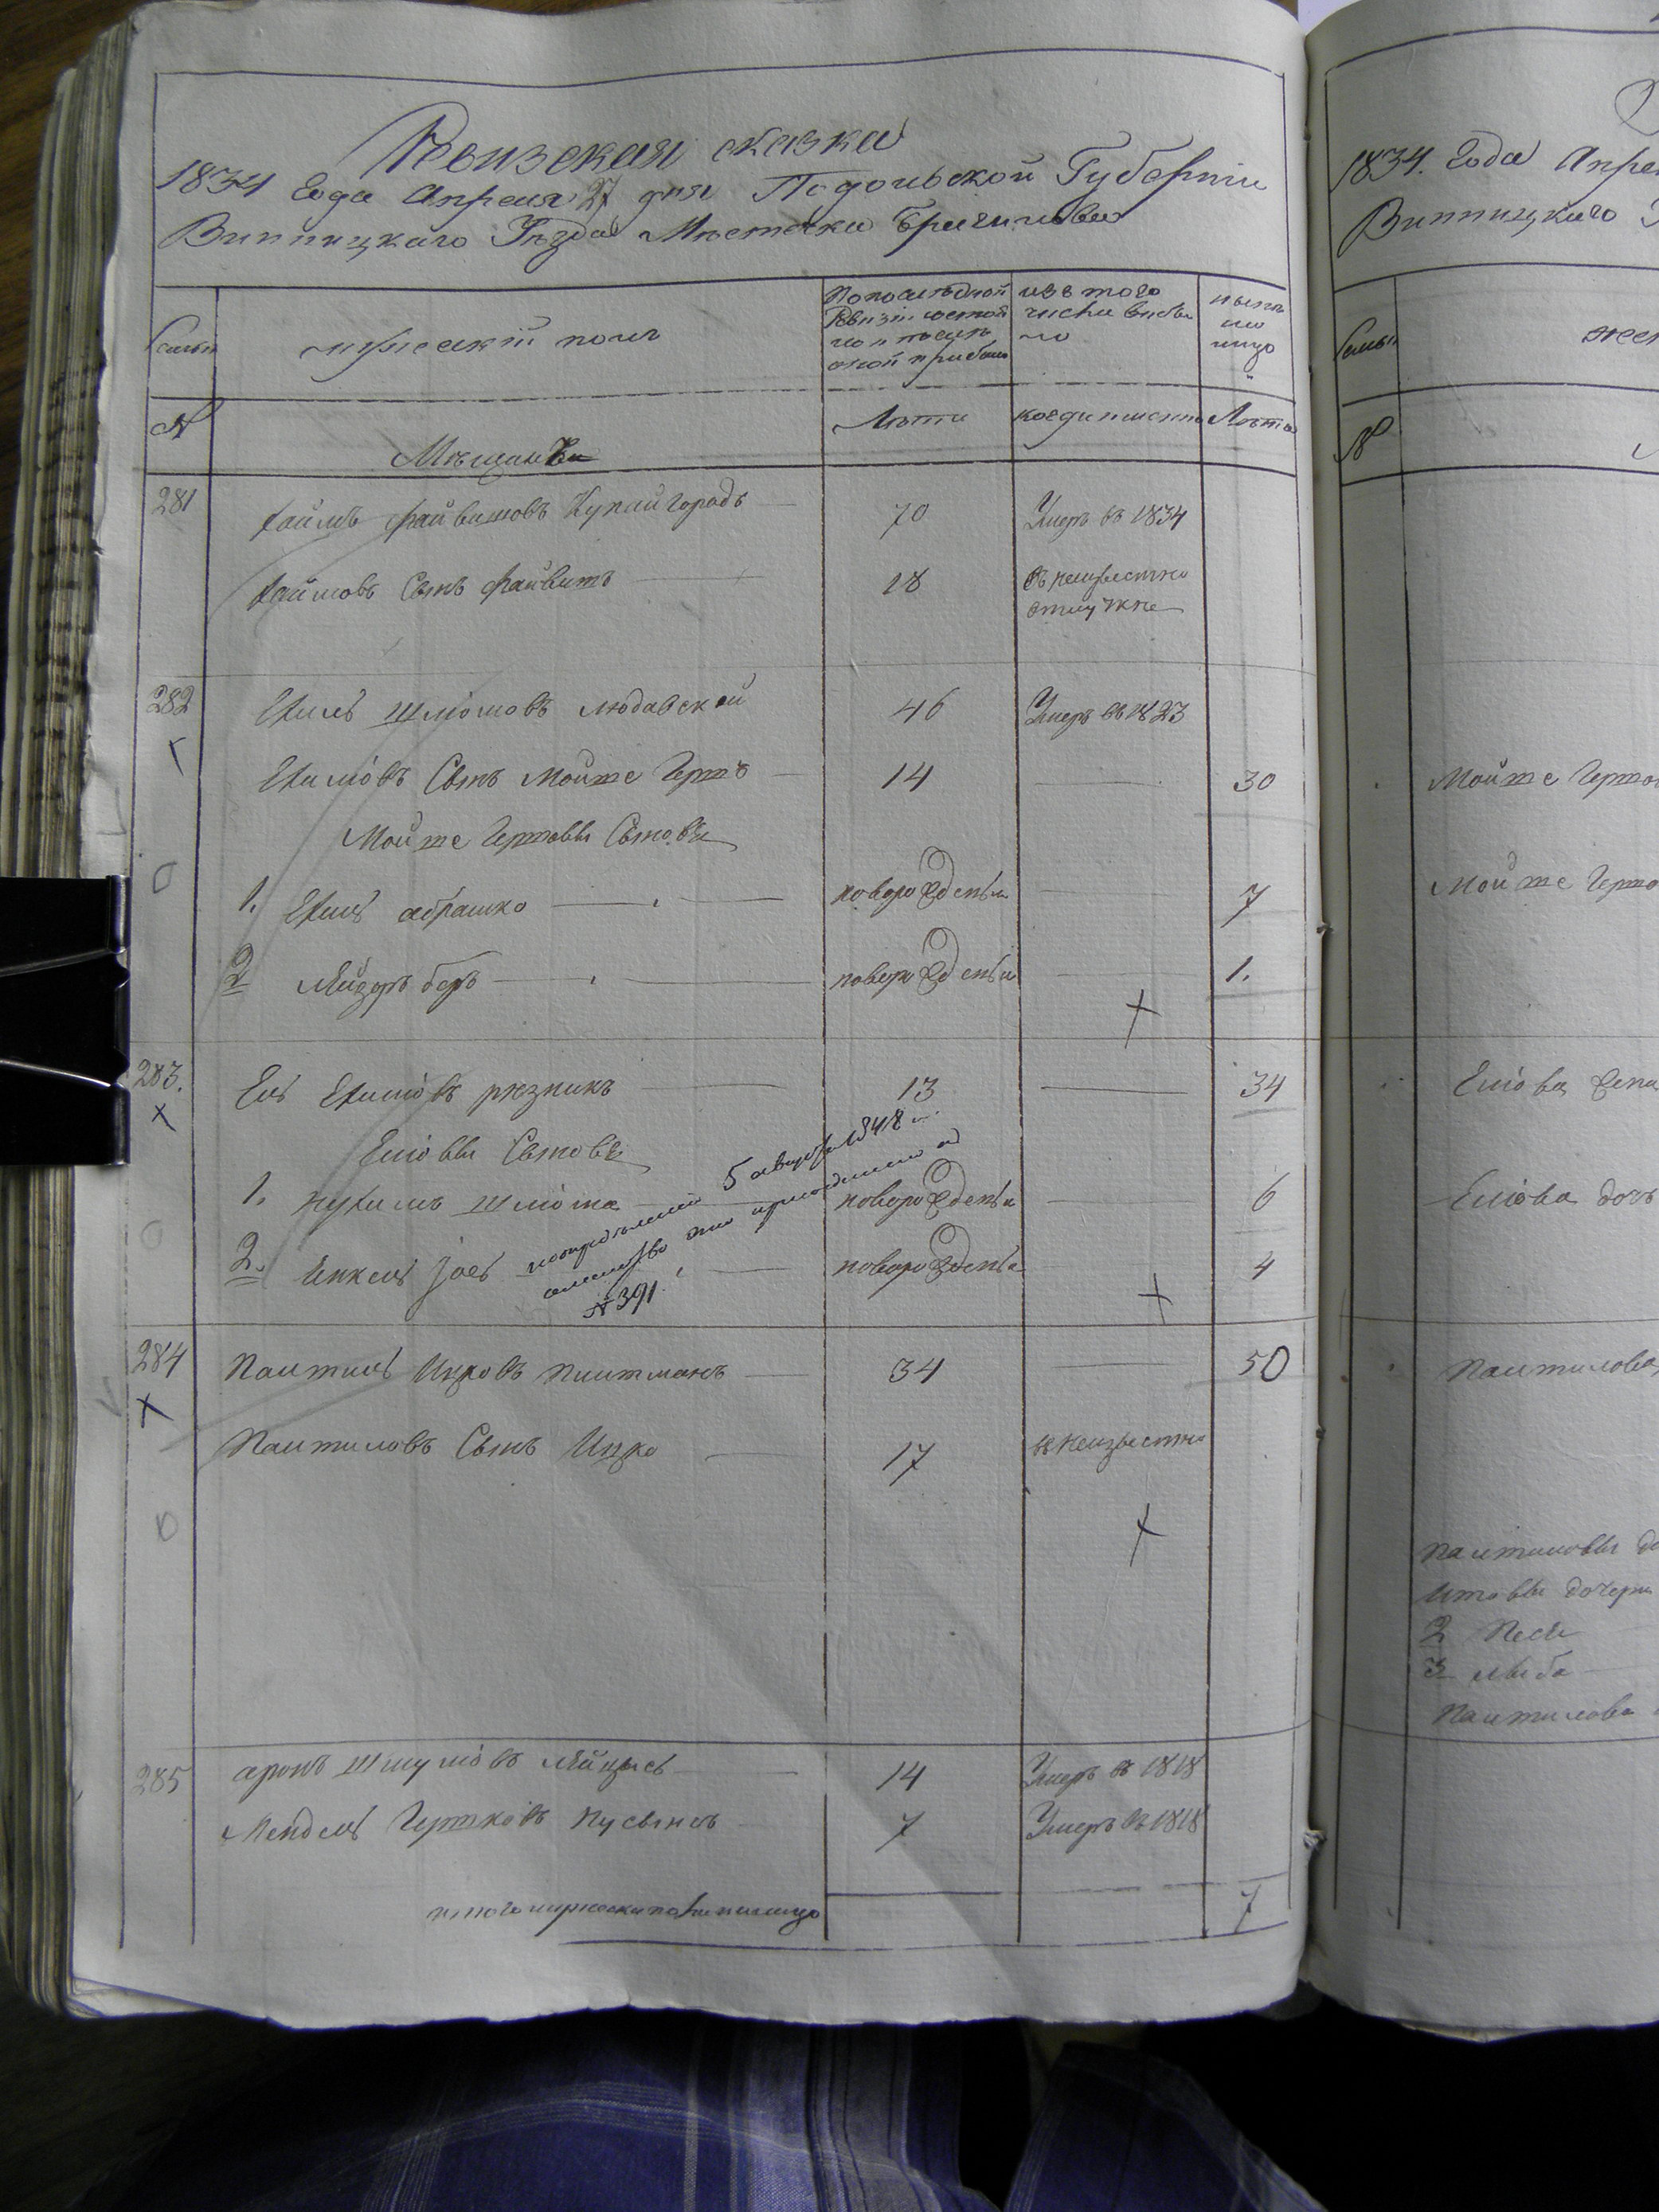 Ревизская сказка
1834 года Апреля 27 дня Подольской Губернiи
Винницкаго Уѣзда Мѣстечка Браилова
Семьи
мужескiй полъ
По последной Ревизiи состояло и после оной прибыло
изъ того числа выбыло
ныне на лицо
№
Мѣщане
Лѣта
когда именно
Лѣта
281
Хаимъ Файвишовъ Купайгородъ
70
Умеръ въ 1834
Хаимовъ Сынъ Файвишъ
18
Въ неизвестно отлучке
282
Ехиль Шлiомовъ
46
Умеръ въ 1823
Ехилiовъ Сынъ Мойше Гершъ
14
30
Мойше Гершовы Сыновья
1. Ехиль абрашко
новорожденъ
7
2 Лейзоръ беръ
новорожденъ
1.
283.
Ель Ехилiовъ резникъ
13
34
Елiовы Сыновья
5 1848
1. нухимъ шлiома
новорожденъ
6
2. Янкель Iоель
новорожденъ
4
№ 391
284
Палтиель Ицковъ Плитманъ
34
50
Палтиловъ Сынъ Ицко
17
въ неизвестно
285
аронъ Шмулiовъ
14
Умеръ въ 1818
Мендель Гершковъ
7
Умеръ въ 1818
итого мужеска пола на лицо
7
1834. года Апре
Винницкаго
Семьи
жен
№
Мойше Гершо
Мойше Гершо
Елiова жена
Елiова дочь
Палтилова
Палтиловы до
дочери
2 Песя
3
Палтилова